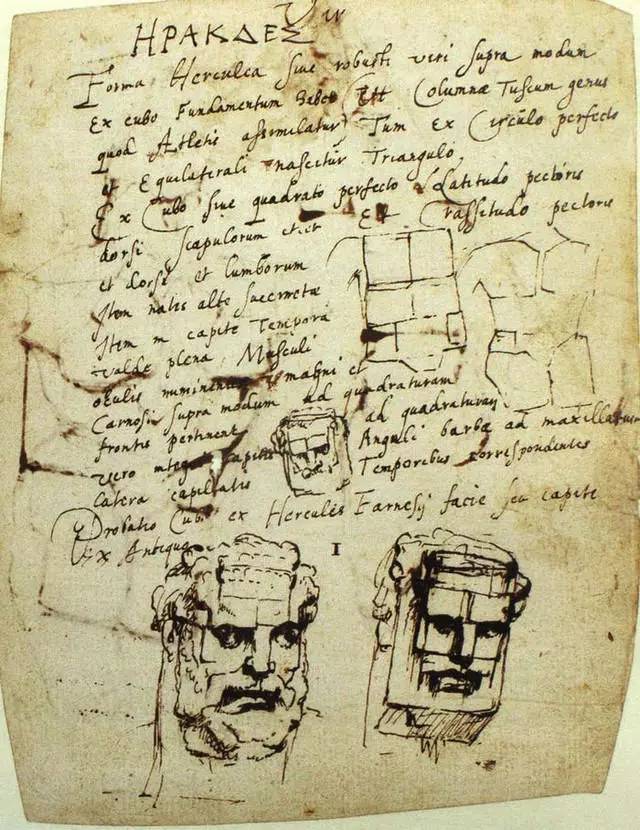 Vir
ΗΡΑΚΔΕΣ
Forma Herculea sive robusti viri supra modum
Ex cubo Fundamentum habet Est Columnæ Tuscum genus
quod Atletis assimilatur Tum Ex Circulo perfecto
et Equilaterali nascitur Triangulo
Ex Cubo sive quadrato perfecto Latitudo pectoris
dorsi scapulorum et Et Crassitudo pectoris
et dorsi et lumborum
Item nates alte
Item in capite Tempora
valde plena Musculi
oculis magni et
Carnosi supra modum ad quadraturam
frontis pertinent ad quadraturam
vero capitis Anguli barbæ ad maxillarum
latera Temporibus correspondentes
Probatio Cubi ex Hercules Farnesij facie seu capite
Ex Antiquo
I